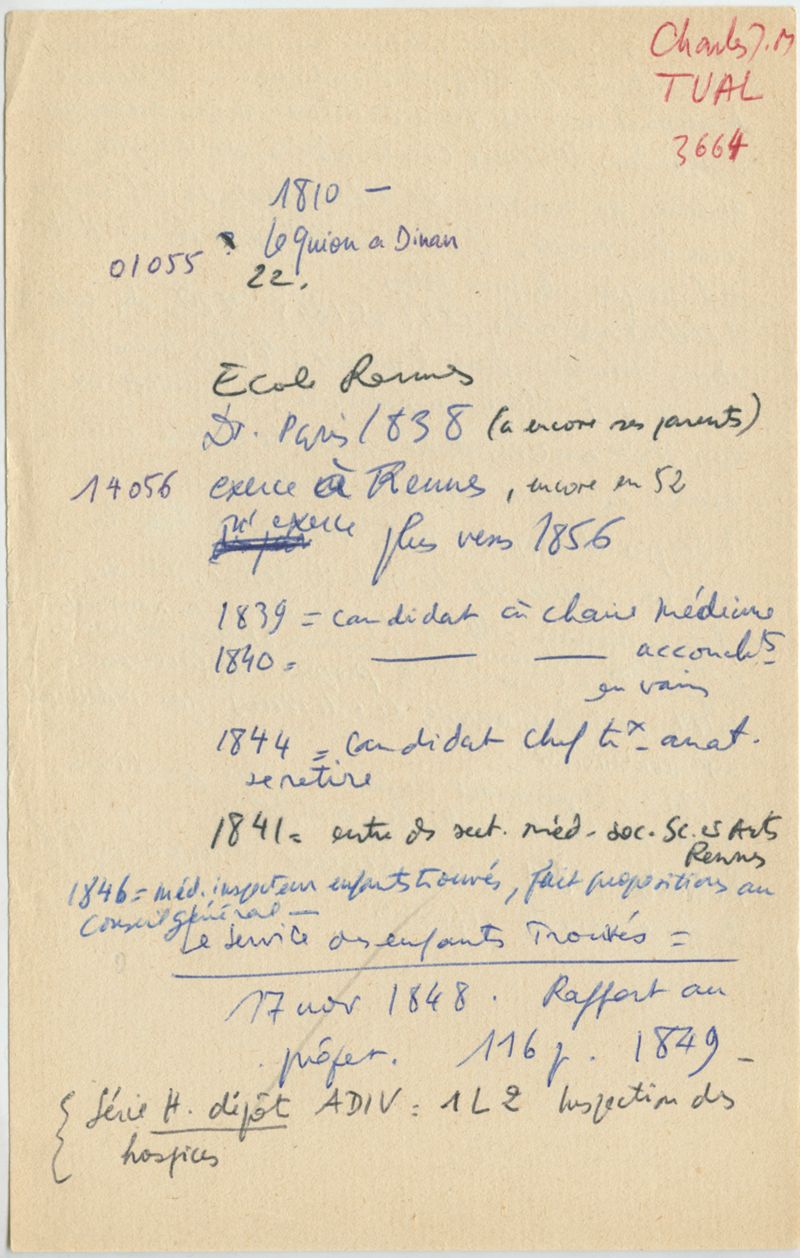 Charles J. M
TUAL
3664
1810 –
? Le Guion a Dinan
01055
22.
Ecole Rennes
Dr. Paris 1838 (a encore ses parents)
14056 exerce à Rennes, encore en 52
n'exerce plus vers 1856
1839 = candidat à chaire médecine
1840 = — — accoucht​s
en vain
1844 = candidat chef tx anat.
se retire
1841 = entre ds sect. méd. soc. Sc. et Arts
Rennes
1846 = méd. inspecteur enfants trouvés, fait propositions au
Conseil général —
Le Service des enfants Trouvés =
17 nov 1848. Rapport au
préfet. 116 p. 1849 –
{ Série H. dépôt ADIV = 1 L 2 Inspection des
hospices